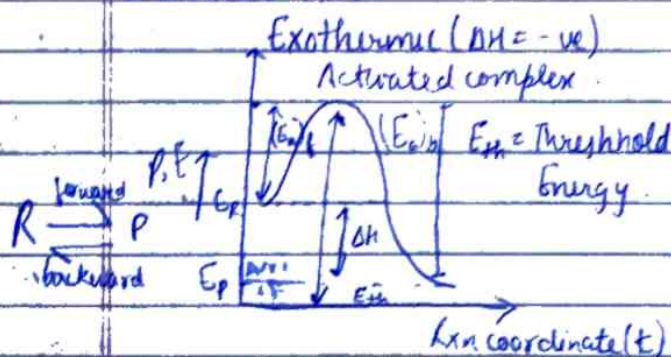 Exothermic (ΔH = -ve)
Activated complex
(Ea)f
(Ea)b
Eth = Threshhold
Energy
P.E
forward
R P
backward
ER
ΔH
EP
Eth
Rxn coordinate (t)